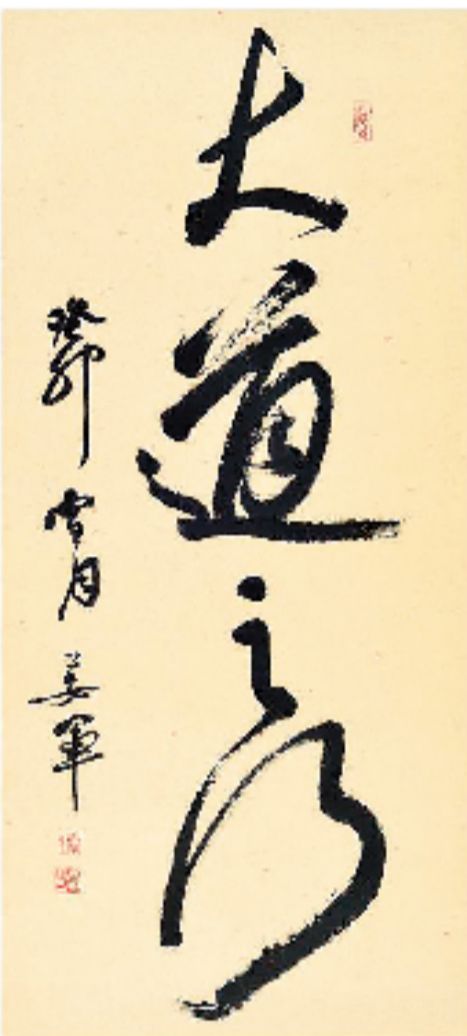 大道之行
癸卯雪月姜軍